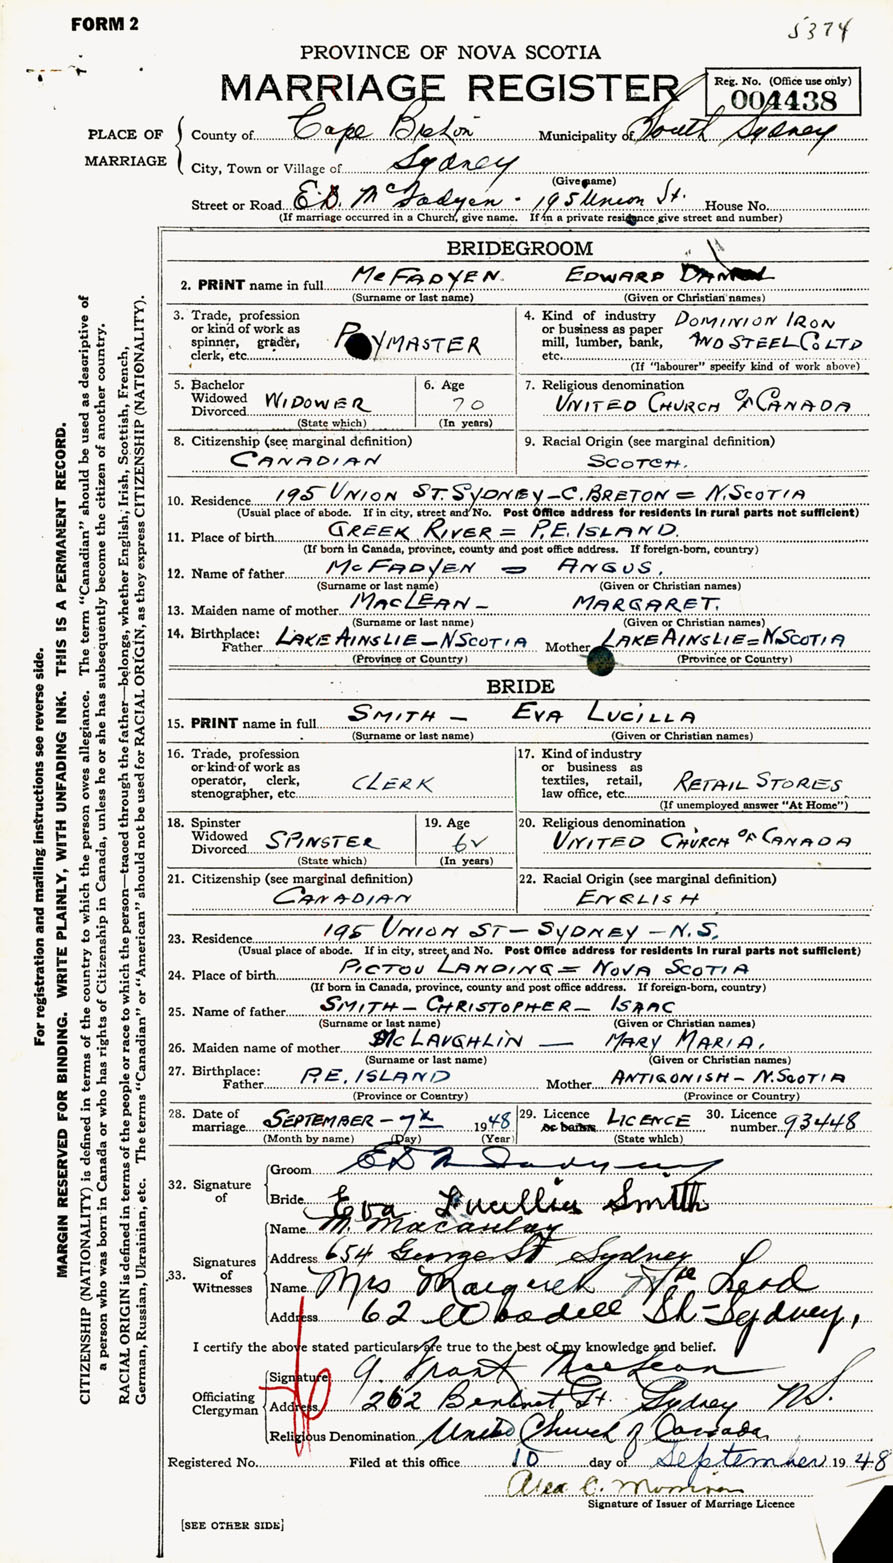 FORM 2
5374
PROVINCE OF NOVA SCOTIA
MARRIAGE REGISTER
Reg. No. (Office use only)
004438
PLACE OF MARRIAGE
County of Cape Breton Municipality of South Sydney
City, Town or Village of Sydney
(Give name)
Street or Road E.D. McFadyen - 195 Union St. House No.
(If marriage occurred in a Church, give name. If in a private residence give street and number)
BRIDEGROOM
2. PRINT name in full McFADYEN EDWARD DANIEL
(Surname or last name) (Given or Christian names)
3. Trade, profession or kind of work as spinner, grader, clerk, etc. PAYMASTER
4. Kind of industry or business as paper mill, lumber, bank, etc. DOMINION IRON AND STEEL CO LTD
(If "labourer" specify kind of work above)
5. Bachelor Widowed Divorced WIDOWER
(State which)
6. Age 70
(In years)
7. Religious denomination UNITED CHURCH OF CANADA
8. Citizenship (see marginal definition) CANADIAN
9. Racial Origin (see marginal definition) SCOTCH.
10. Residence 195 UNION ST. SYDNEY - C. BRETON = N. SCOTIA
(Usual place of abode. If in city, street and No. Post Office address for residents in rural parts not sufficient)
11. Place of birth GREEK RIVER = P.E. ISLAND.
(If born in Canada, province, county and post office address. If foreign-born, country)
12. Name of father McFADYEN = ANGUS.
(Surname or last name) (Given or Christian names)
13. Maiden name of mother MACLEAN - MARGARET.
(Surname or last name) (Given or Christian names)
14. Birthplace: Father LAKE AINSLIE - N SCOTIA Mother LAKE AINSLIE = N. SCOTIA
(Province or Country) (Province or Country)
BRIDE
15. PRINT name in full SMITH - EVA LUCILLA
(Surname or last name) (Given or Christian names)
16. Trade, profession or kind of work as operator, clerk, stenographer, etc. CLERK
17. Kind of industry or business as textiles, retail, law office, etc. RETAIL STORES
(If unemployed answer "At Home")
18. Spinster Widowed Divorced SPINSTER
(State which)
19. Age
(In years)
20. Religious denomination UNITED CHURCH OF CANADA
21. Citizenship (see marginal definition) CANADIAN
22. Racial Origin (see marginal definition) ENGLISH
23. Residence 195 UNION ST - SYDNEY - N.S.
(Usual place of abode. If in city, street and No. Post Office address for residents in rural parts not sufficient)
24. Place of birth PICTOU LANDING = NOVA SCOTIA
(If born in Canada, province, county and post office address. If foreign-born, country)
25. Name of father SMITH - CHRISTOPHER - ISAAC
(Surname or last name) (Given or Christian names)
26. Maiden name of mother McLAUGHLIN - MARY MARIA.
(Surname or last name) (Given or Christian names)
27. Birthplace: Father P.E. ISLAND Mother ANTIGONISH - N. SCOTIA
(Province or Country) (Province or Country)
28. Date of marriage SEPTEMBER - 7th 1948
(Month by name) (Day) (Year)
29. Licence or banns LICENCE
(State which)
30. Licence number 93448
32. Signature of
Groom E D McFadyen
Bride Eva Lucilla Smith
33. Signatures of Witnesses
Name M. Macaulay
Address 654 George St Sydney
Name Mrs Margaret
Address 62 St - Sydney,
I certify the above stated particulars are true to the best of my knowledge and belief.
Officiating Clergyman
Signature G. Grant MacLean
Address 262 St. Sydney N.S.
Religious Denomination United Church of Canada
Registered No. Filed at this office 10 day of September 1948
Alex C.
Signature of Issuer of Marriage Licence
[SEE OTHER SIDE]
For registration and mailing instructions see reverse side.
MARGIN RESERVED FOR BINDING. WRITE PLAINLY, WITH UNFADING INK. THIS IS A PERMANENT RECORD.
CITIZENSHIP (NATIONALITY) is defined in terms of the country to which the person owes allegiance. The term "Canadian" should be used as descriptive of
a person who was born in Canada or who has rights of Citizenship in Canada, unless he or she has subsequently become the citizen of another country.
RACIAL ORIGIN is defined in terms of the people or race to which the person—traced through the father—belongs, whether English, Irish, Scottish, French,
German, Russian, Ukrainian, etc. The terms "Canadian" or "American" should not be used for RACIAL ORIGIN, as they express CITIZENSHIP (NATIONALITY).